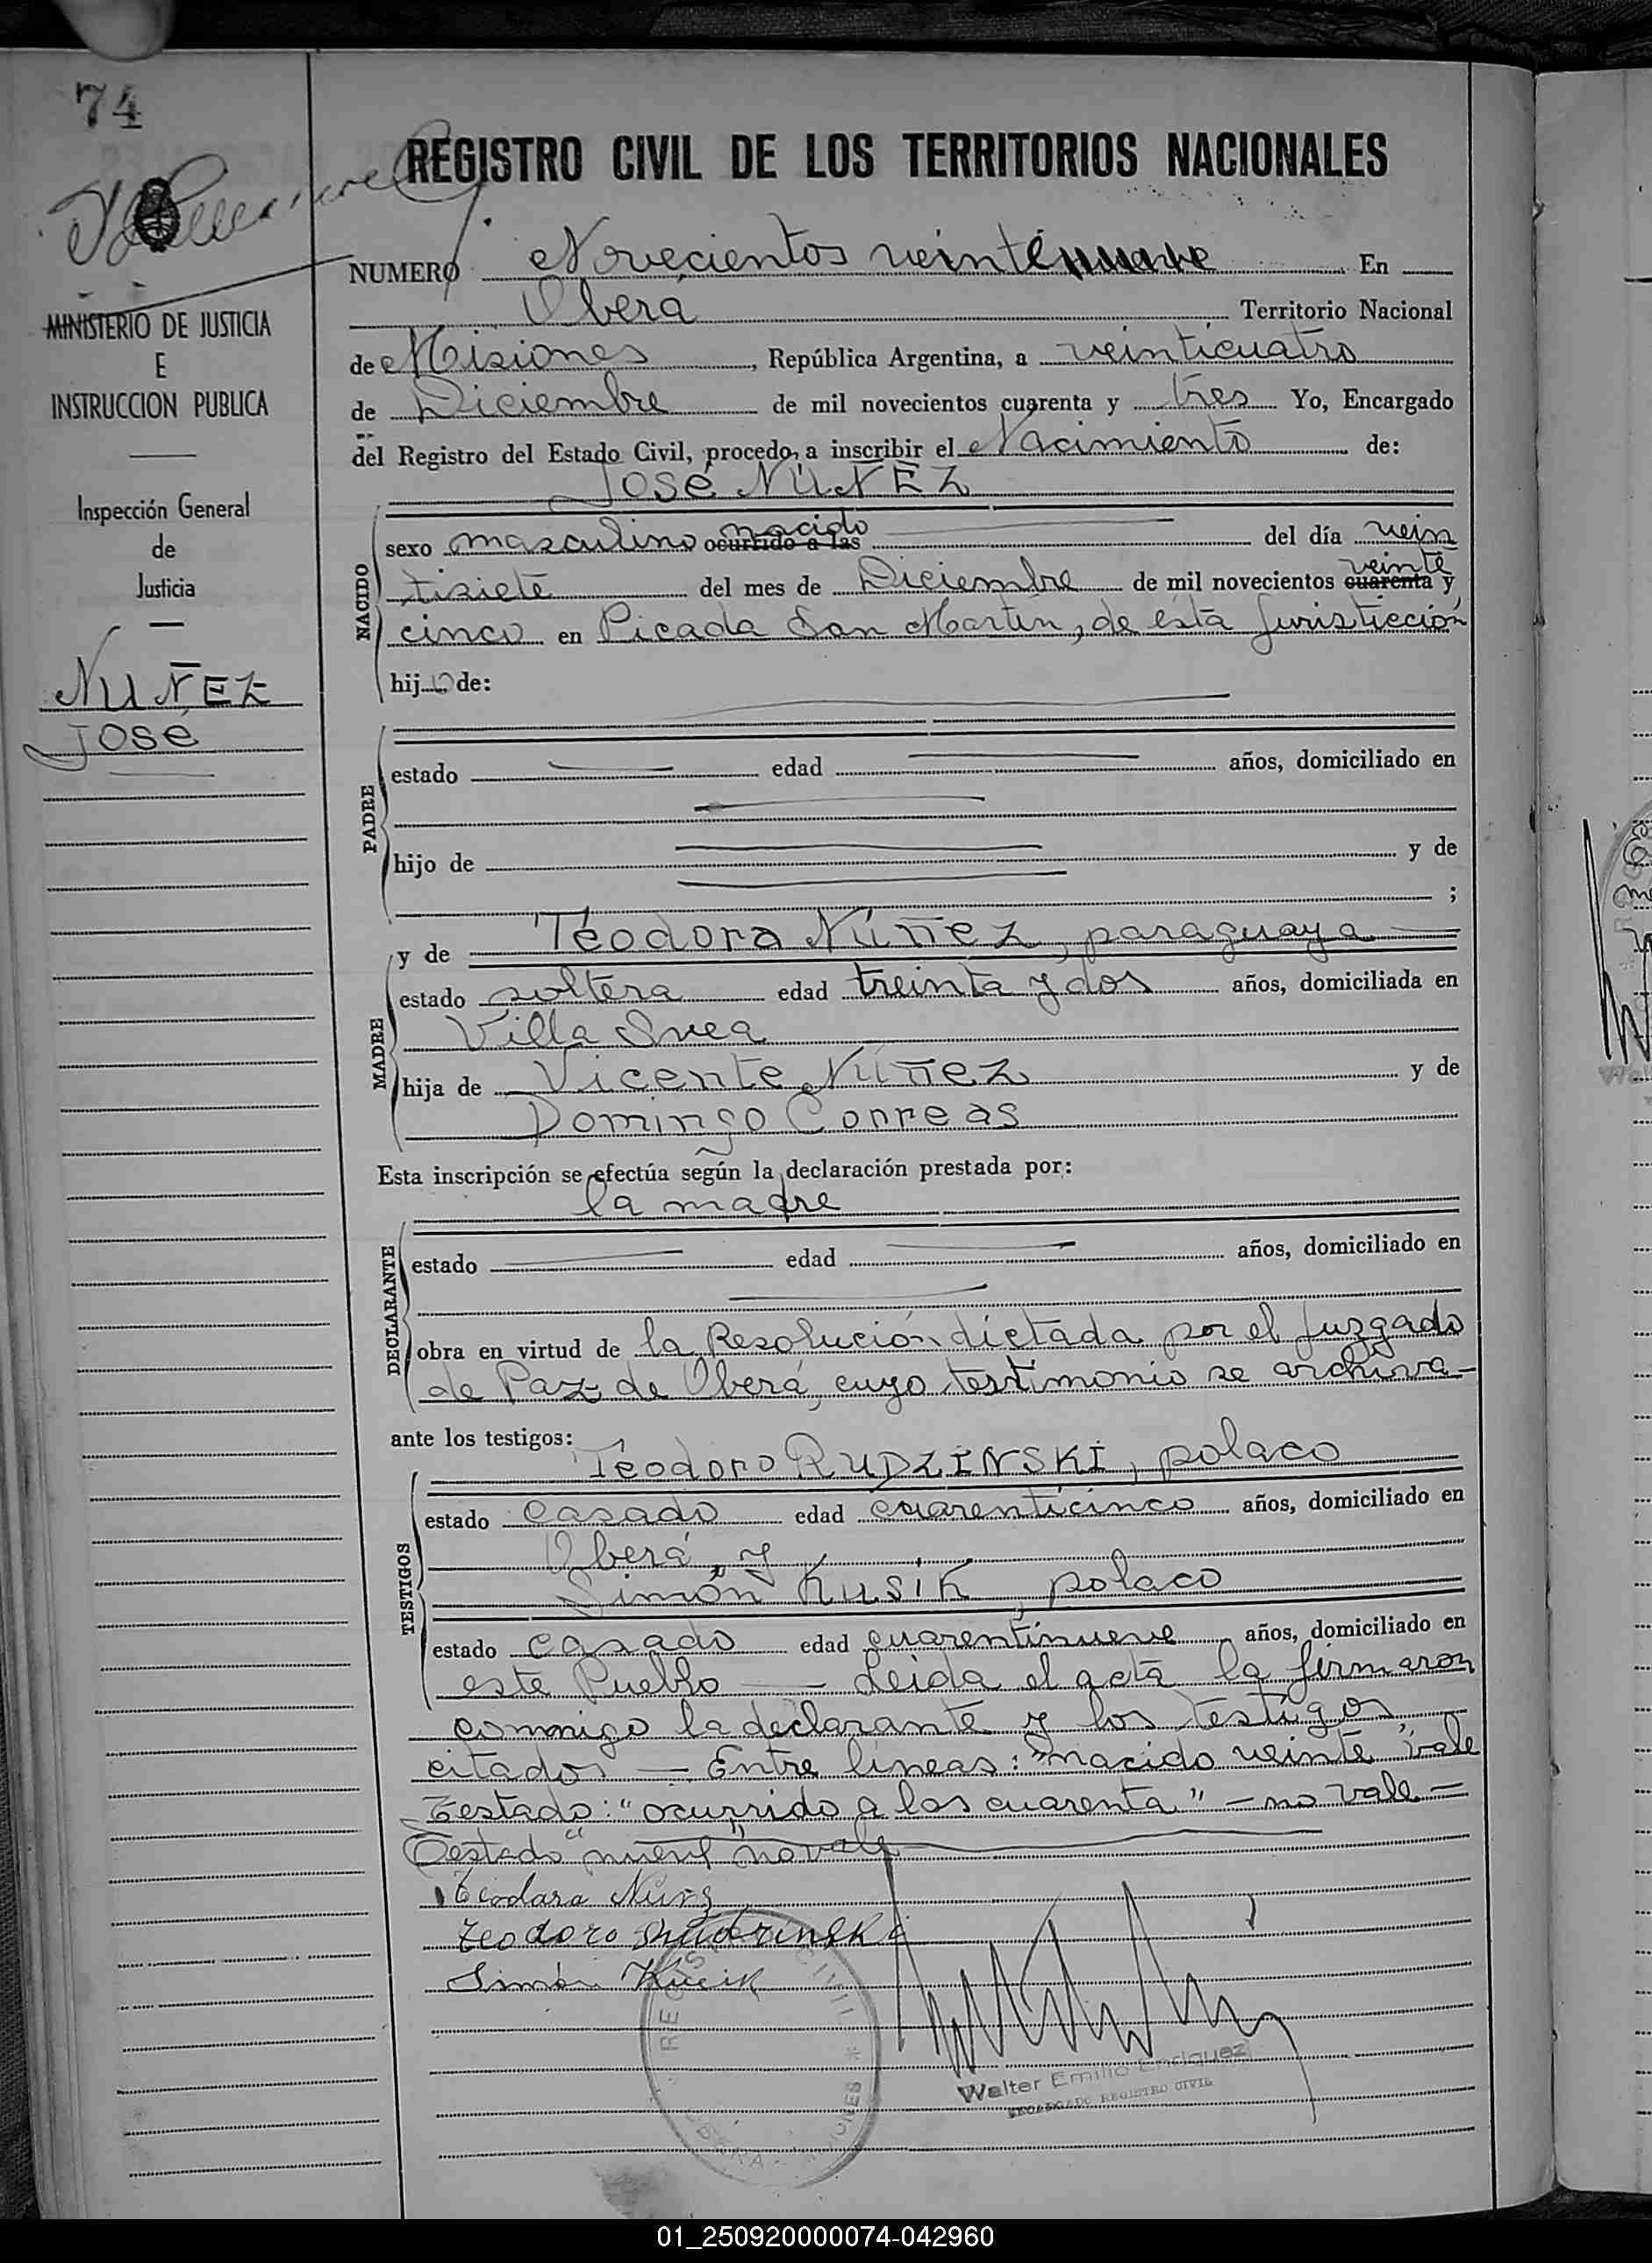 74
REGISTRO CIVIL DE LOS TERRITORIOS NACIONALES
NUMERO Novecientos veinte En
Oberá Territorio Nacional
MINISTERIO DE JUSTICIA
E
INSTRUCCION PUBLICA
de Misiones, República Argentina, a veinticuatro
de Diciembre de mil novecientos cuarenta y tres Yo, Encargado
del Registro del Estado Civil, procedo, a inscribir el Nacimiento de:
José NUÑEZ
Inspección General
de
Justicia
NUÑEZ
José
NACIDO
nacido
sexo masculino ocurrido a las del día vein
veinte
tisiete del mes de Diciembre de mil novecientos cuarenta y
cinco en Picada San Martín, de esta Juristicción
hijo de:
PADRE
estado edad años, domiciliado en
hijo de y de
;
MADRE
y de Teodora Núñez, paraguaya
estado soltera edad treinta y dos años, domiciliada en
Villa Svea
hija de Vicente Núñez y de
Domingo Correas
Esta inscripción se efectúa según la declaración prestada por:
la madre
DECLARANTE
estado edad años, domiciliado en
obra en virtud de la Resolución dictada por el Juzgado
de Paz de Oberá, cuyo testimonio se archiva-
ante los testigos:
TESTIGOS
Teodoro RUDZINSKI, polaco
estado casado edad cuarenticinco años, domiciliado en
Oberá, y
Simón Kusik, polaco
estado casado edad cuarentinueve años, domiciliado en
este Pueblo — Leida el acta la firmaron
conmigo la declarante y los testigos
citados — Entre líneas: "nacido veinte" vale
Testado: "ocurrido a las cuarenta" - no vale =
Testado "nueve" no vale
Teodora Núñz
Teodoro Rudzinski
Simón Kusik
Walter Emilio Enriquez
ENCARGADO REGISTRO CIVIL
01_250920000074-042960